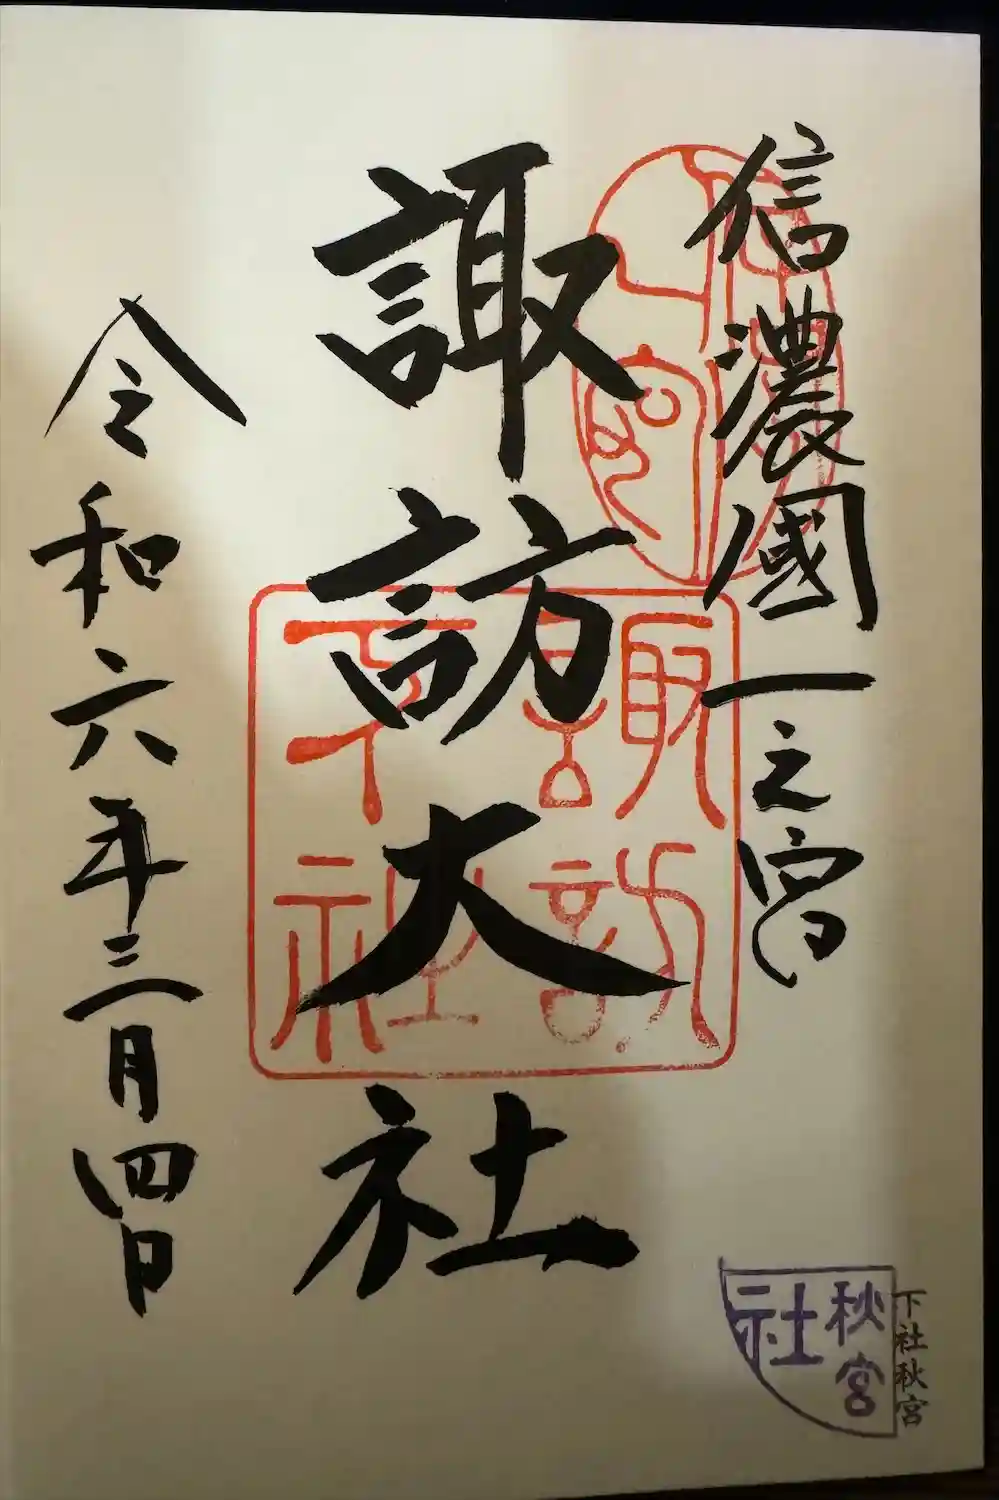 信濃國一之宮
諏訪大社
令和六年三月四日
諏訪
下社
下社秋宮
秋宮
社